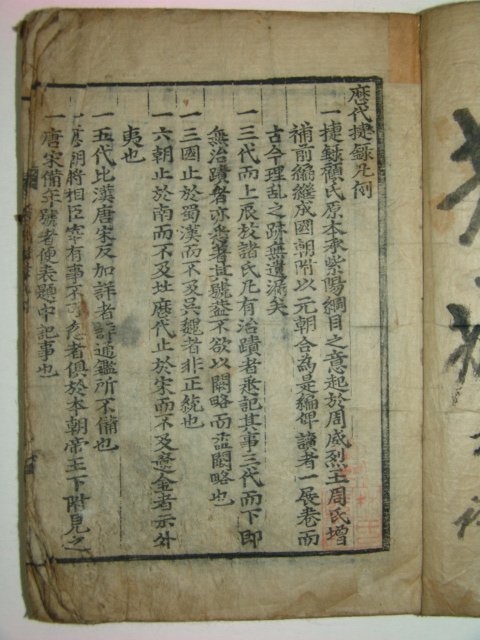 歷代捷錄凡例
一捷錄顧氏原本承紫陽綱目之意起於周威烈王周氏增
補前編繼成國朝附以元朝合為是編俾讀者一展卷而
古今理乱之跡無遺漏矣
一三代而上辰放諸氏凡有治蹟者兼記其事三代而下即
無治蹟者亦兼著其號盖不欲以闕略而益闕略也
一三國止於蜀漢而不及吳魏者非正統也
一六朝止於南而不及北歷代止於宋而不及遼金者示外
夷也
一五代比漢唐宋反加詳者詳通鑑所不備也
一 朝將相臣宰有事不可 者俱於本朝帝王下附見之
一唐宋備年號者便表題中記事也